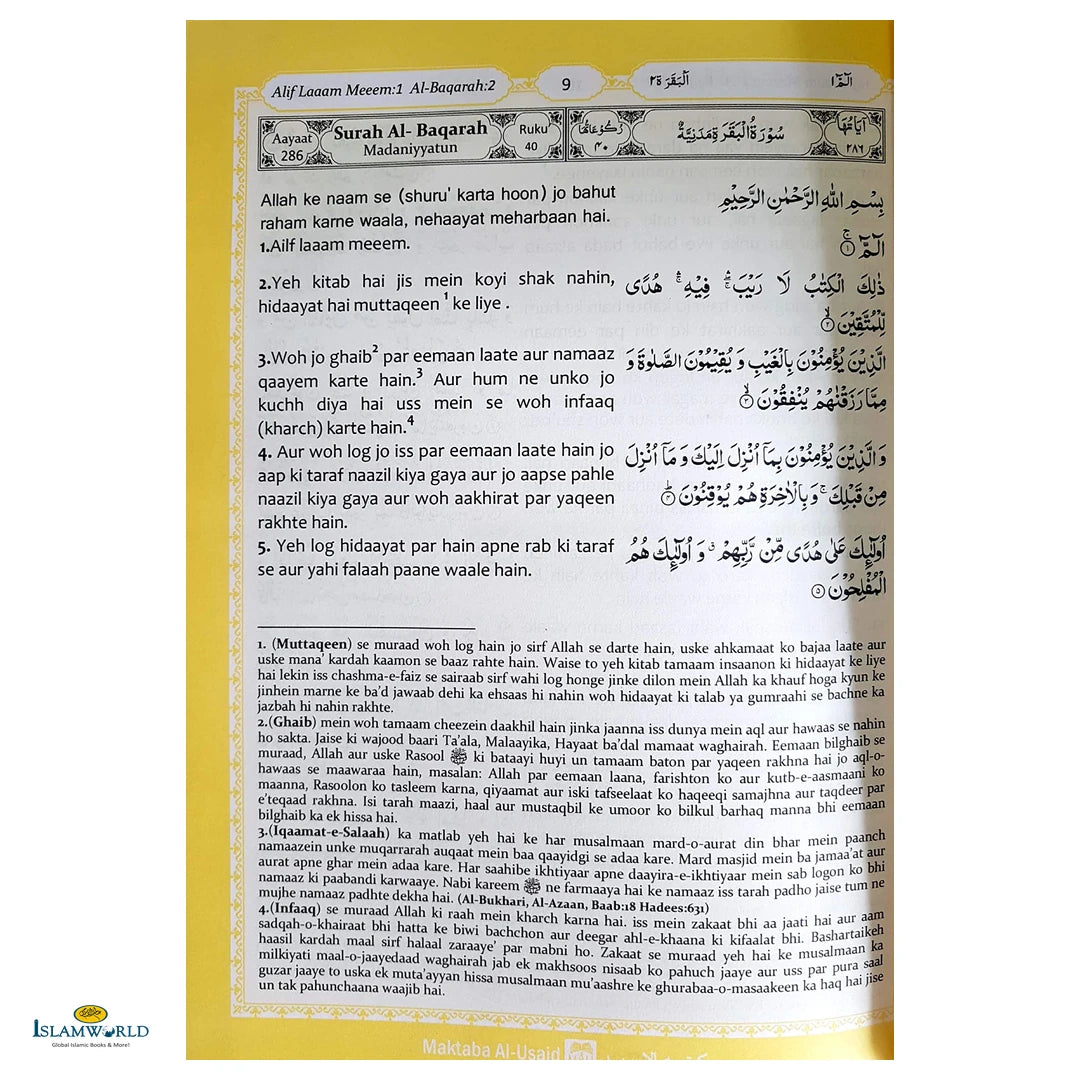 Alif Laaam Meeem:1 Al-Baqarah:2
9
اَلْبَقَرَة ٢
الٓمّٓ ١
Aayaat
286
Surah Al- Baqarah
Madaniyyatun
Ruku
40
رُكُوْعَاتُهَا
٤٠
سُوْرَةُ الْبَقَرَةِ مَدَنِيَّةٌ
اٰيَاتُهَا
٢٨٦
Allah ke naam se (shuru' karta hoon) jo bahut
raham karne waala, nehaayat meharbaan hai.
1.Ailf laaam meeem.
2.Yeh kitab hai jis mein koyi shak nahin,
hidaayat hai muttaqeen 1 ke liye .
3.Woh jo ghaib2 par eemaan laate aur namaaz
qaayem karte hain.3 Aur hum ne unko jo
kuchh diya hai uss mein se woh infaaq
(kharch) karte hain.4
4. Aur woh log jo iss par eemaan laate hain jo
aap ki taraf naazil kiya gaya aur jo aapse pahle
naazil kiya gaya aur woh aakhirat par yaqeen
rakhte hain.
5. Yeh log hidaayat par hain apne rab ki taraf
se aur yahi falaah paane waale hain.
بِسْمِ اللّٰهِ الرَّحْمٰنِ الرَّحِيْمِ
الٓمّٓ ۚ ١
ذٰلِكَ الْكِتٰبُ لَا رَيْبَ ۛۖ فِيْهِ ۛۚ هُدًى
لِّلْمُتَّقِيْنَ ۙ ٢
الَّذِيْنَ يُؤْمِنُوْنَ بِالْغَيْبِ وَ يُقِيْمُوْنَ الصَّلٰوةَ وَ
مِمَّا رَزَقْنٰهُمْ يُنْفِقُوْنَ ۙ ٣
وَ الَّذِيْنَ يُؤْمِنُوْنَ بِمَاۤ اُنْزِلَ اِلَيْكَ وَ مَاۤ اُنْزِلَ
مِنْ قَبْلِكَ ۚ وَ بِالْاٰخِرَةِ هُمْ يُوْقِنُوْنَ ؕ ٤
اُولٰٓئِكَ عَلٰى هُدًى مِّنْ رَّبِّهِمْ ۗ وَ اُولٰٓئِكَ هُمُ
الْمُفْلِحُوْنَ ٥
1. (Muttaqeen) se muraad woh log hain jo sirf Allah se darte hain, uske ahkamaat ko bajaa laate aur
uske mana' kardah kaamon se baaz rahte hain. Waise to yeh kitab tamaam insaanon ki hidaayat ke liye
hai lekin iss chashma-e-faiz se sairaab sirf wahi log honge jinke dilon mein Allah ka khauf hoga kyun ke
jinhein marne ke ba'd jawaab dehi ka ehsaas hi nahin woh hidaayat ki talab ya gumraahi se bachne ka
jazbah hi nahin rakhte.
2.(Ghaib) mein woh tamaam cheezein daakhil hain jinka jaanna iss dunya mein aql aur hawaas se nahin
ho sakta. Jaise ki wajood baari Ta'ala, Malaayika, Hayaat ba'dal mamaat waghairah. Eemaan bilghaib se
muraad, Allah aur uske Rasool ﷺ ki bataayi huyi un tamaam baton par yaqeen rakhna hai jo aql-o-
hawaas se maawaraa hain, masalan: Allah par eemaan laana, farishton ko aur kutb-e-aasmaani ko
maanna, Rasoolon ko tasleem karna, qiyaamat aur iski tafseelaat ko haqeeqi samajhna aur taqdeer par
e'teqaad rakhna. Isi tarah maazi, haal aur mustaqbil ke umoor ko bilkul barhaq manna bhi eemaan
bilghaib ka ek hissa hai.
3.(Iqaamat-e-Salaah) ka matlab yeh hai ke har musalmaan mard-o-aurat din bhar mein paanch
namaazein unke muqarrarah auqaat mein baa qaayidgi se adaa kare. Mard masjid mein ba jamaa'at aur
aurat apne ghar mein adaa kare. Har saahibe ikhtiyaar apne daayira-e-ikhtiyaar mein sab logon ko bhi
namaaz ki paabandi karwaaye. Nabi kareem ﷺ ne farmaaya hai ke namaaz iss tarah padho jaise tum ne
mujhe namaaz padhte dekha hai. (Al-Bukhari, Al-Azaan, Baab:18 Hadees:631)
4.(Infaaq) se muraad Allah ki raah mein kharch karna hai. iss mein zakaat bhi aa jaati hai aur aam
sadqah-o-khairaat bhi hatta ke biwi bachchon aur deegar ahl-e-khaana ki kifaalat bhi. Bashartaikeh
haasil kardah maal sirf halaal zaraaye' par mabni ho. Zakaat se muraad yeh hai ke musalmaan ka
milkiyati maal-o-jaayedaad waghairah jab ek makhsoos nisaab ko pahuch jaaye aur uss par pura saal
guzar jaaye to uska ek muta'ayyan hissa musalmaan mu'aashre ke ghurabaa-o-masaakeen ka haq hai jise
un tak pahunchaana waajib hai.
Maktaba Al-Usaid
ISLAMWORLD
Global Islamic Books & More!